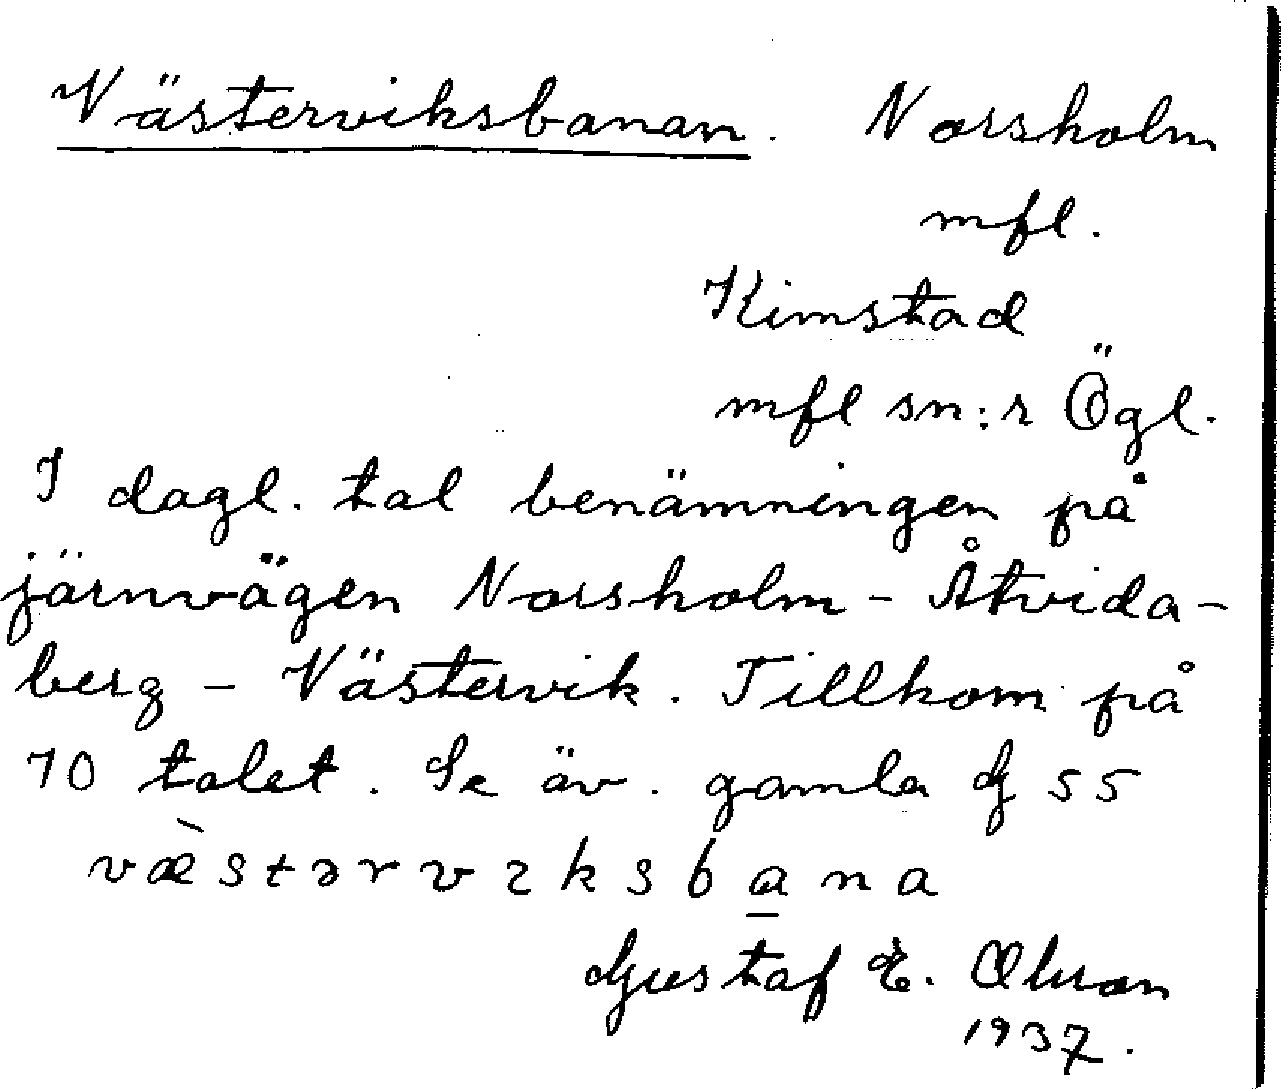 Västerviksbanan. Norsholm
mfl.
Kimstad
mfl sn:r Ögl.
I dagl. tal benämningen på
järnvägen Norsholm - Åtvida-
berg - Västervik. Tillkom på
70 talet. Se äv. gamla G 55
væ̀stərvıksba̲na
Gustaf E.
1937.